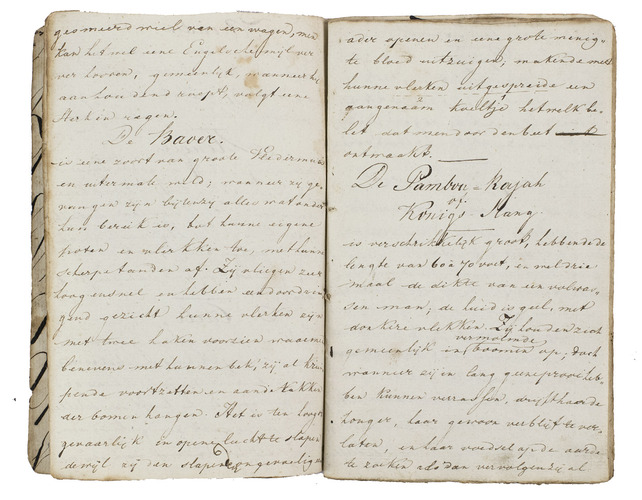 gesmeerd wiel van een wagen, men
kan het wel eene Engelsche mijl ver
ver hooren, gemeenlijk, wanneer hij
aanhoudend roept, volgt eene
sterken regen.
De Baver.
is eene zoort van groote Vledermuis
en uitermate wild; wanneer zij ge-
vangen zijn bijten zij alles wat onder
hun bereik is, tot hunne eigene
poten en vlerkken toe, met hunne
scherpe tanden af. Zij vliegen zeer
hoog en snel en hebben een doordrin
gend gezicht hunne vlerken zijn
met twee haken voorzien waarmee
benevens met hunnen bek, zij al krui
pende voortzetten en aan de takken
der bomen hangen. Het is ten hoogst
gevaarlijk in opene lucht te slapen
dewijl zij den slapende ongevoelig
ader openen in eene grote menig-
te bloed uitzuigen, makende met
hunne vlerken uitgespreide een
aangenaam koeltje hetwelk be-
let dat men door den beet
ontwaakt.
De Pambou-Rajah
of
Konigs-Slang
is verschrikkelijk groot, hebbende de
lengte van 60 à 70 voet, en wel drie
maal de dikte van een volwas-
sen man; de huid is geel, met
donkere vlekken. Zij houden zich
gemeenlijk in vermolmde boomen op; doch
wanneer zij in lang geene prooi heb-
ben kunnen verrassen,
honger, haar gewoon verblijf te ver-
laten, en haar voedsel op de aarde
te zoeken als dan vervolgen zij al